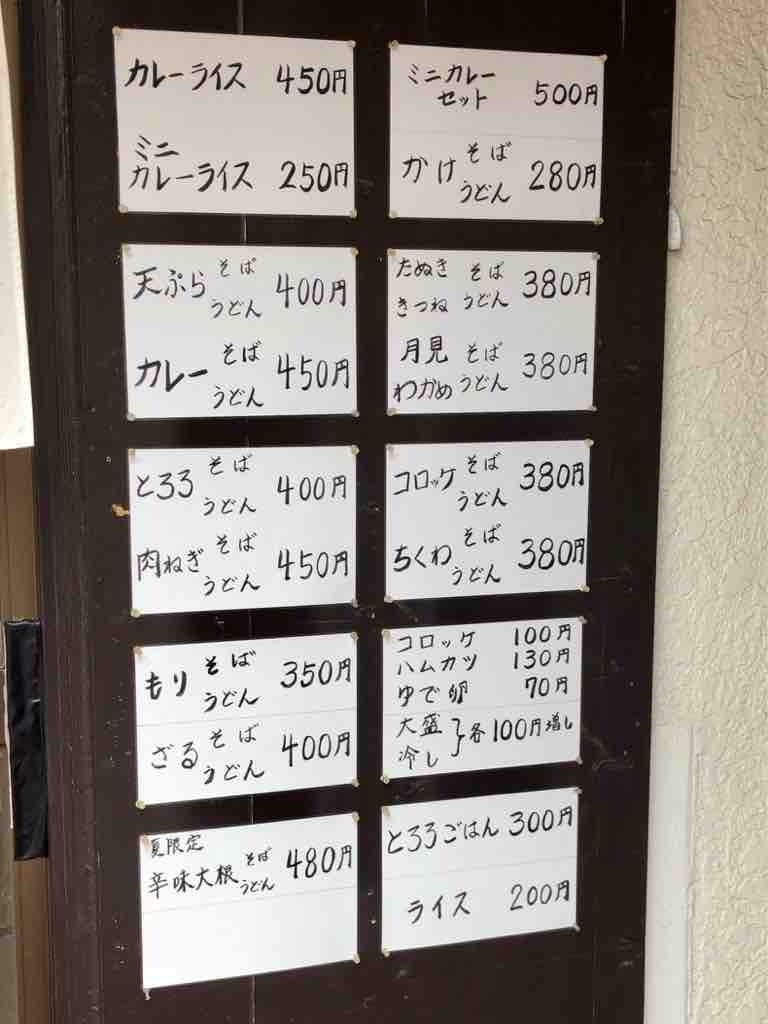 カレーライス 450円
ミニ
カレーライス 250円
ミニカレー
セット 500円
かけ そば うどん 280円
天ぷら そば うどん 400円
カレー そば うどん 450円
たぬき きつね そば うどん 380円
月見 わかめ そば うどん 380円
とろろ そば うどん 400円
肉ねぎ そば うどん 450円
コロッケ そば うどん 380円
ちくわ そば うどん 380円
もり そば うどん 350円
ざる そば うどん 400円
コロッケ 100円
ハムカツ 130円
ゆで卵 70円
大盛 冷し } 各100円増し
夏限定
辛味大根 そば うどん 480円
とろろごはん 300円
ライス 200円